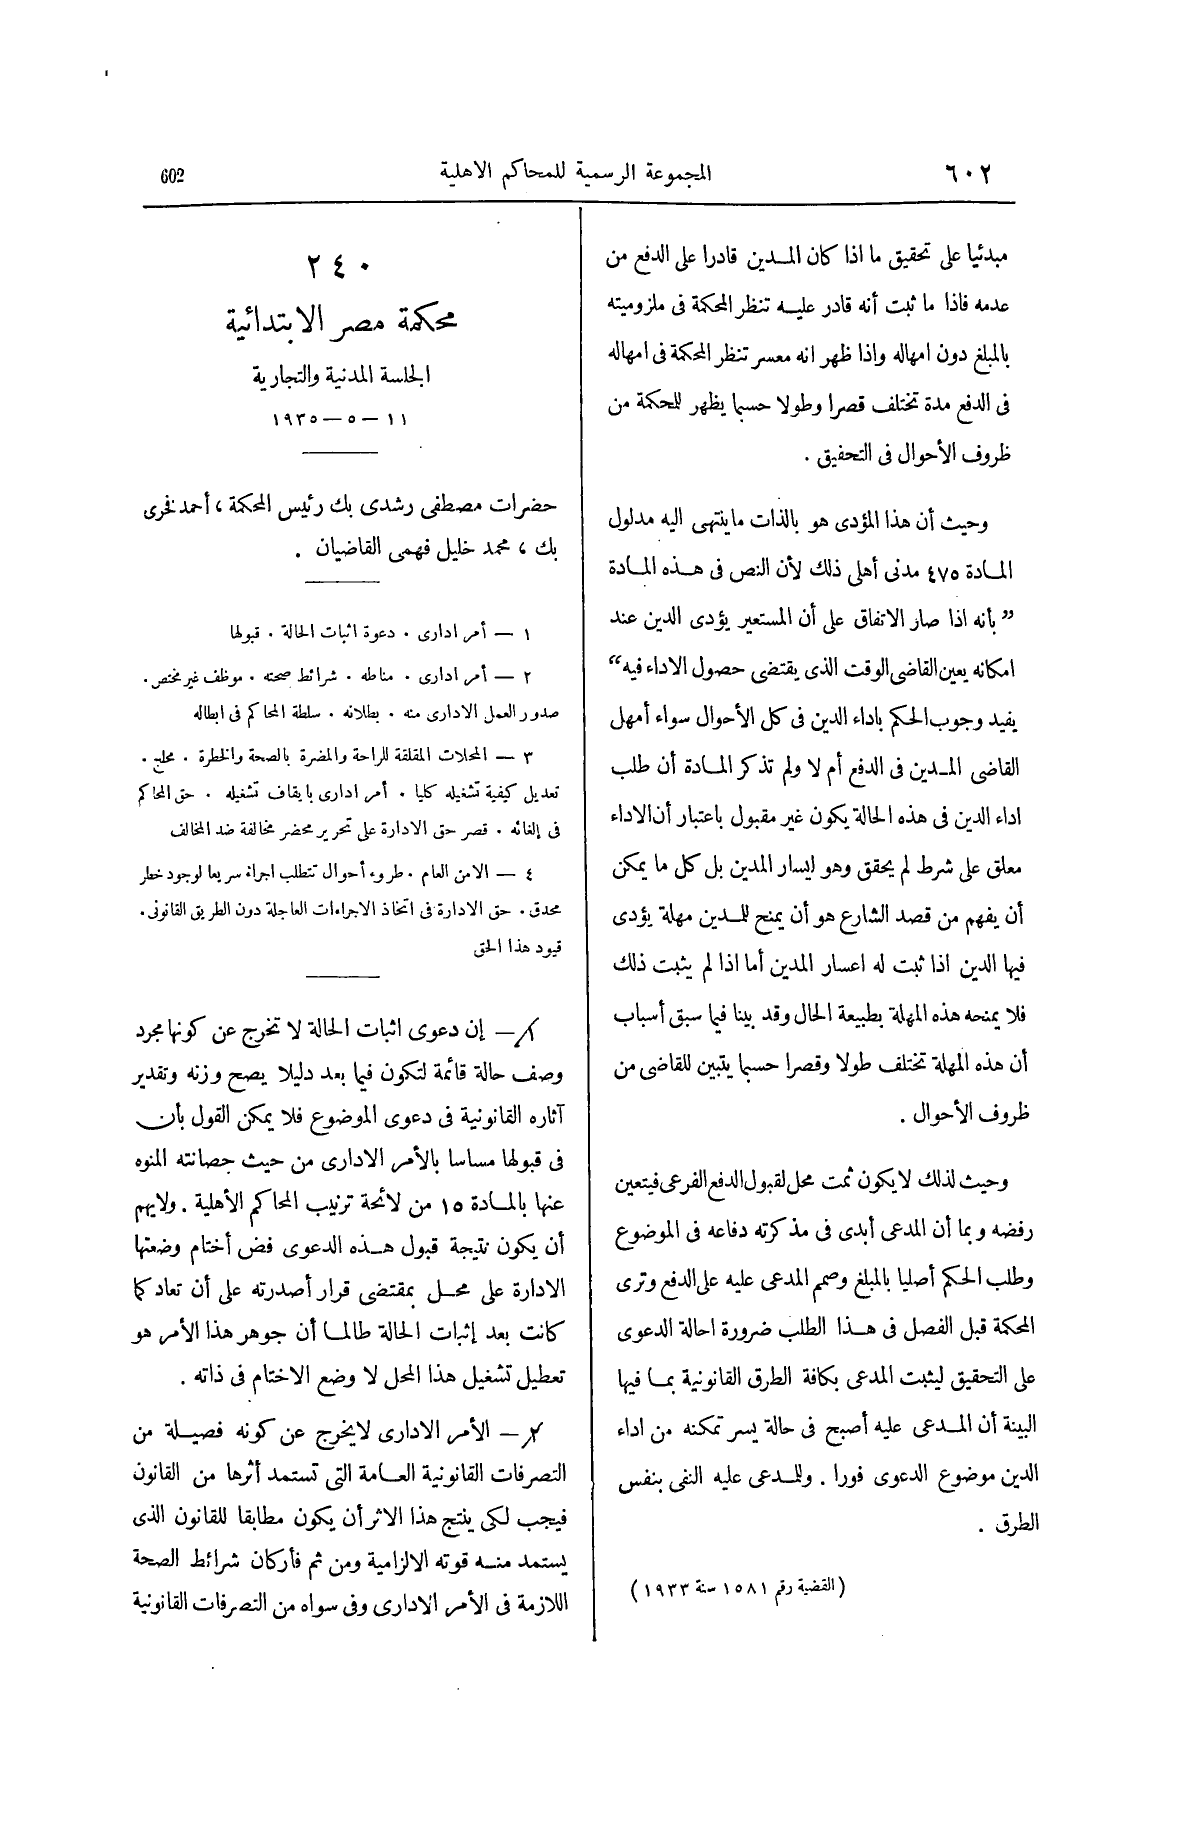 ٦٠٢
المجموعة الرسمية للمحاكم الاهلية
602
مبدئيا على تحقيق ما اذا كان المدين قادرا على الدفع من
عدمه فاذا ما ثبت أنه قادر عليه تنظر المحكمة فى ملزوميته
بالمبلغ دون امهاله واذا ظهر انه معسر تنظر المحكمة فى امهاله
فى الدفع مدة تختلف قصرا وطولا حسبما يظهر للحكمة من
ظروف الأحوال فى التحقيق .
وحيث أن هذا المؤدى هو بالذات ما ينتهى اليه مدلول
المادة ٤٧٥ مدنى أهلى ذلك لأن النص فى هذه المادة
” بأنه اذا صار الاتفاق على أن المستعير يؤدى الدين عند
امكانه يعين القاضى الوقت الذى يقتضى حصول الاداء فيه “
يفيد وجوب الحكم باداء الدين فى كل الأحوال سواء أمهل
القاضى المدين فى الدفع أم لا ولم تذكر المادة أن طلب
اداء الدين فى هذه الحالة يكون غير مقبول باعتبار أن الاداء
معلق على شرط لم يحقق وهو ليسار المدين بل كل ما يمكن
أن يفهم من قصد الشارع هو أن يمنح للمدين مهلة يؤدى
فيها الدين اذا ثبت له اعسار المدين أما اذا لم يثبت ذلك
فلا يمنحه هذه المهلة بطبيعة الحال وقد بينا فيما سبق أسباب
أن هذه المهلة تختلف طولا وقصرا حسبما يتبين للقاضى من
ظروف الأحوال .
وحيث لذلك لا يكون ثمت محل لقبول الدفع الفرعى فيتعين
رفضه وبما أن المدعى أبدى فى مذكرته دفاعه فى الموضوع
وطلب الحكم أصليا بالمبلغ وصمم المدعى عليه على الدفع وترى
المحكمة قبل الفصل فى هذا الطلب ضرورة احالة الدعوى
على التحقيق ليثبت المدعى بكافة الطرق القانونية بما فيها
البينة أن المدعى عليه أصبح فى حالة يسر تمكنه من اداء
الدين موضوع الدعوى فورا . وللمدعى عليه النفى بنفس
الطرق .
(القضية رقم ١٥٨١ سنة ١٩٣٣)
٢٤٠
محكمة مصر الابتدائية
الجلسة المدنية والتجارية
١١ — ٥ — ١٩٣٥
حضرات مصطفى رشدى بك رئيس المحكمة ، أحمد فخرى
بك ، محمد خليل فهمى القاضيان .
١ — أمر ادارى . دعوة اثبات الحالة . قبولها
٢ — أمر ادارى . مناطه . شرائط صحته . موظف غير مختص .
صدور العمل الادارى منه . بطلانه . سلطة المحاكم فى ابطاله
٣ — المحلات المقلقة للراحة والمضرة بالصحة والخطرة . محلج .
تعديل كيفية تشغيله كليا . أمر ادارى بايقاف تشغيله . حق المحاكم
فى إلغائه . قصر حق الادارة على تحرير محضر مخالفة ضد المخالف
٤ — الامن العام . طروء أحوال تتطلب اجراء سريعا لوجود خطر
محدق . حق الادارة فى اتخاذ الاجراءات العاجلة دون الطريق القانونى .
قيود هذا الحق
١ — إن دعوى اثبات الحالة لا تخرج عن كونها مجرد
وصف حالة قائمة لتكون فيما بعد دليلا يصح وزنه وتقدير
آثاره القانونية فى دعوى الموضوع فلا يمكن القول بأن
فى قبولها مساسا بالأمر الادارى من حيث حصانته المنوه
عنها بالمادة ١٥ من لائحة ترتيب المحاكم الأهلية . ولا يهم
أن يكون نتيجة قبول هذه الدعوى فض أختام وضعتها
الادارة على محل بمقتضى قرار أصدرته على أن تعاد كما
كانت بعد إثبات الحالة طالما أن جوهر هذا الأمر هو
تعطيل تشغيل هذا المحل لا وضع الاختام فى ذاته .
٢ — الأمر الادارى لا يخرج عن كونه فصيلة من
التصرفات القانونية العامة التى تستمد أثرها من القانون
فيجب لكى ينتج هذا الاثر أن يكون مطابقا للقانون الذى
يستمد منه قوته الالزامية ومن ثم فأركان شرائط الصحة
اللازمة فى الأمر الادارى وفى سواه من التصرفات القانونية